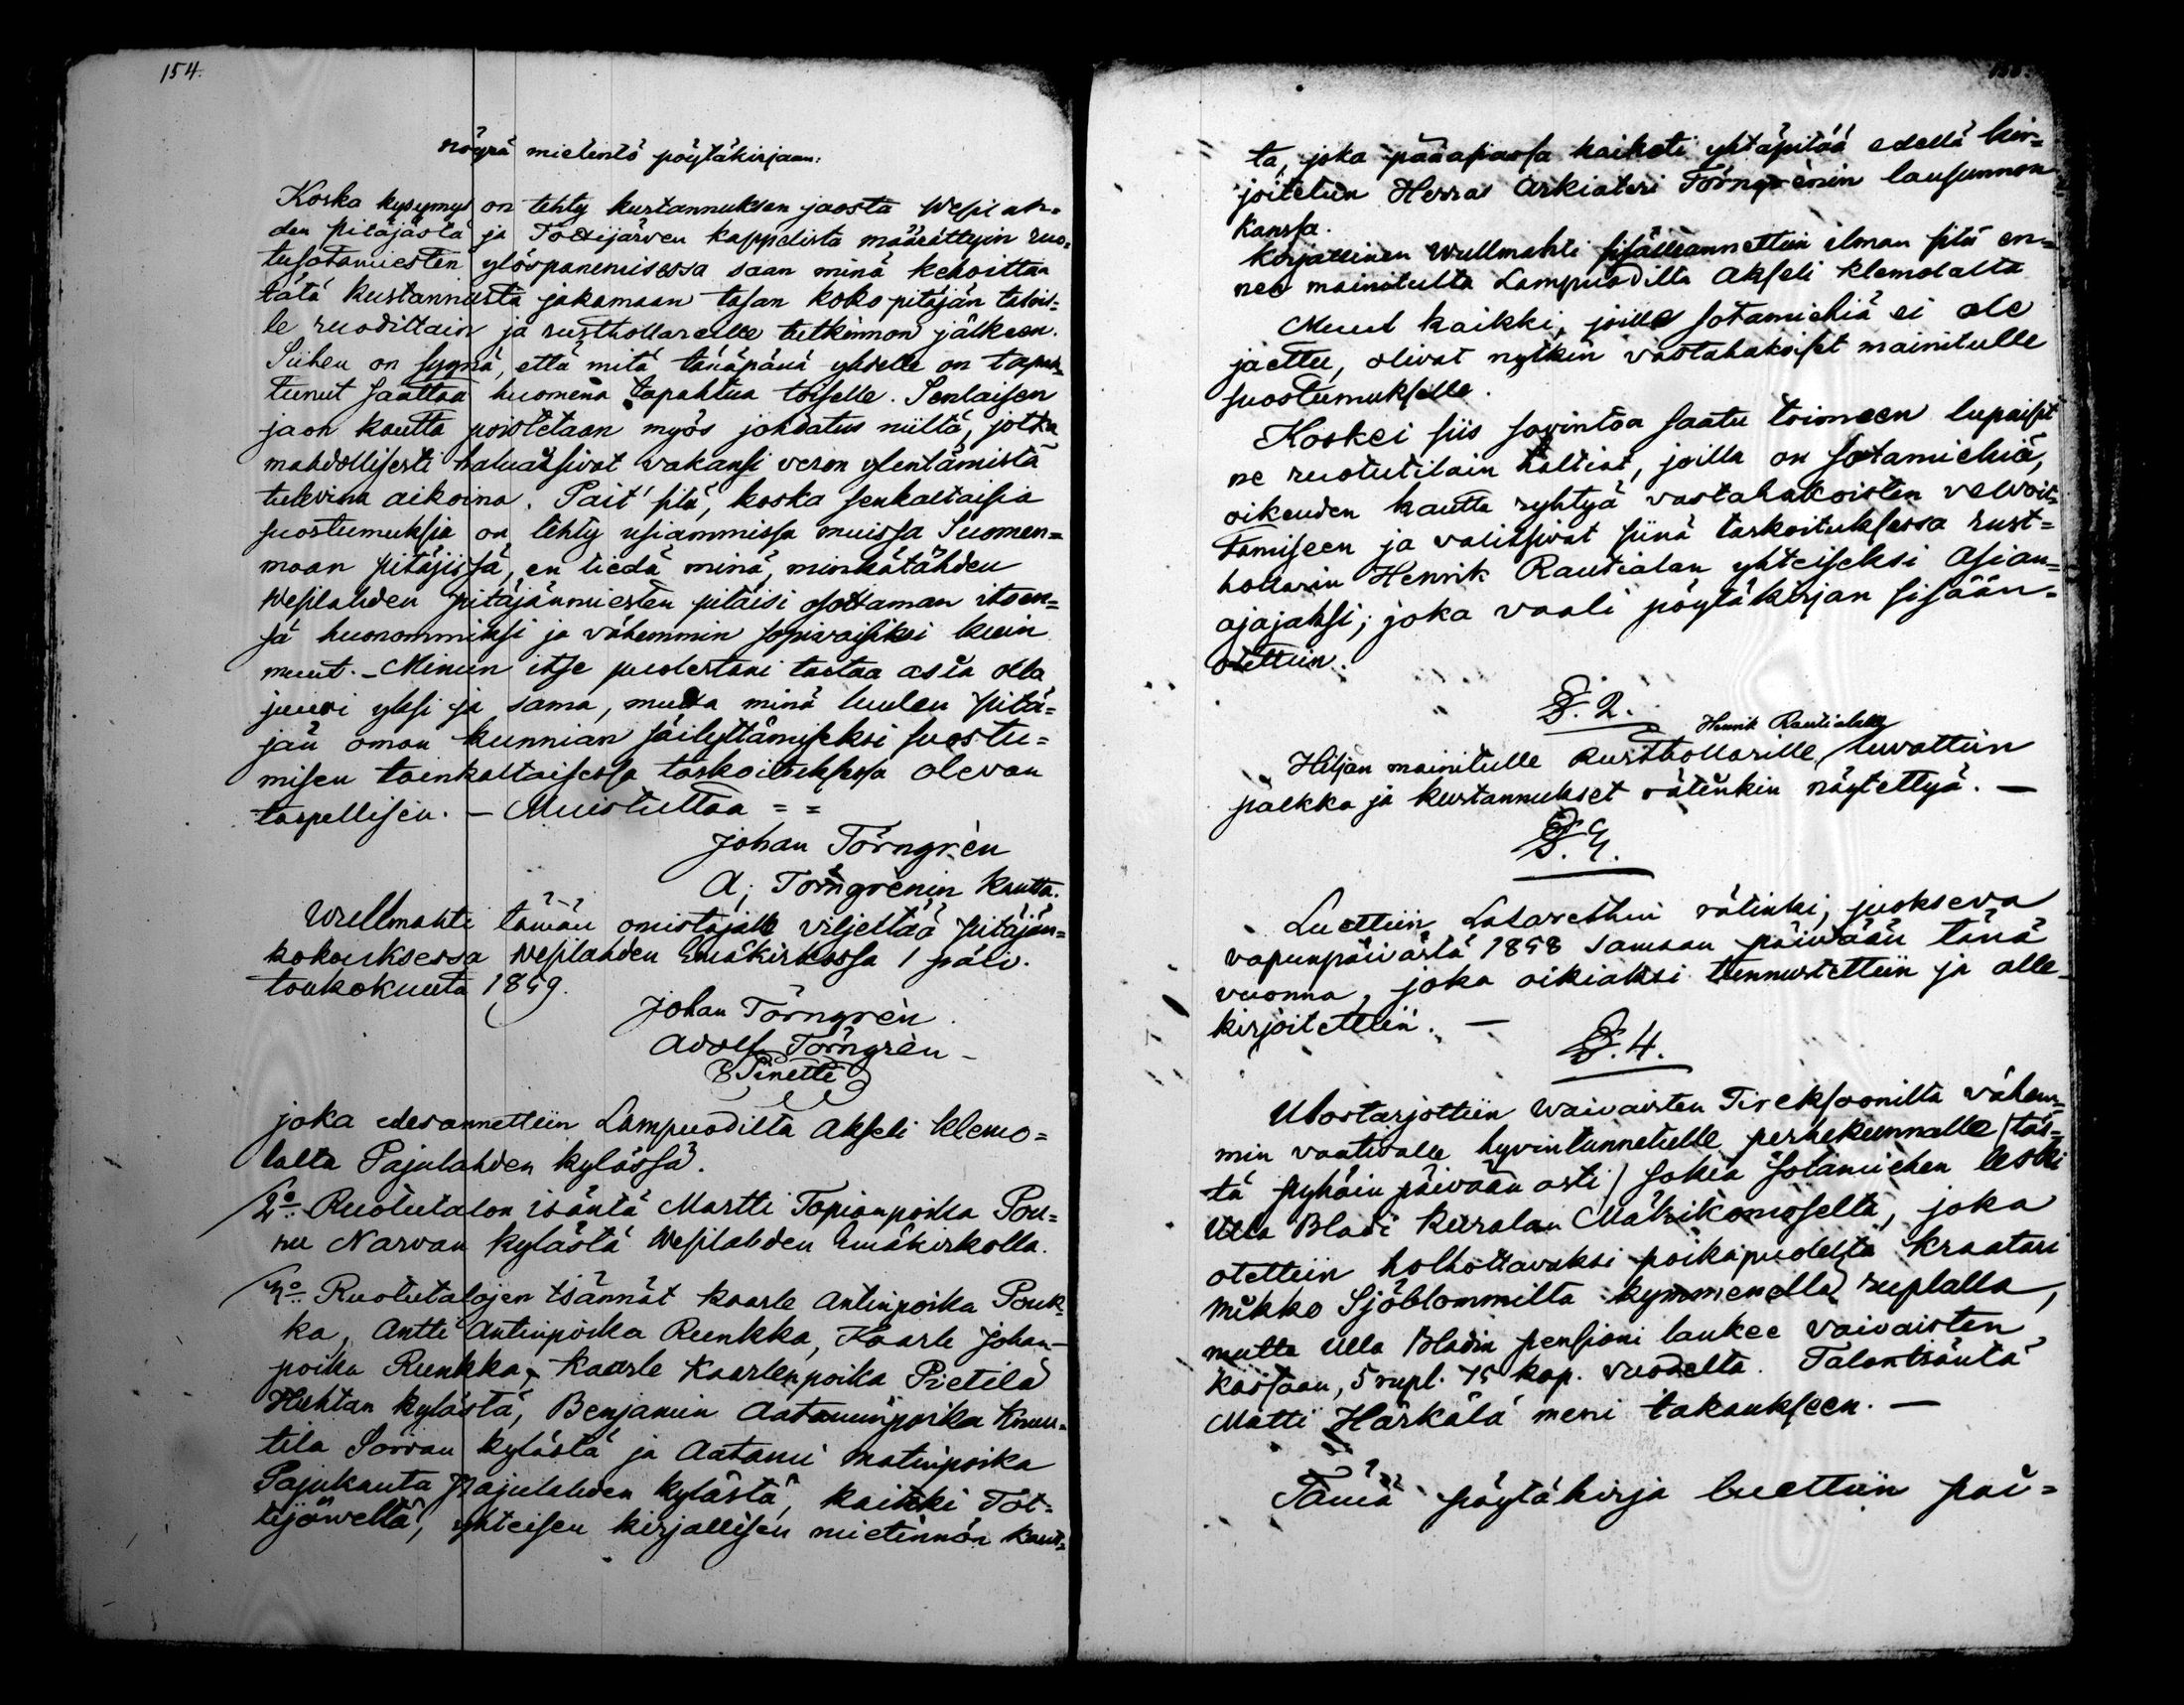 154.
nöyrä mietintö pöytäkirjaan:
Koska kysymys on tehty kustannuksen jaosta Wesilah=
den pitäjästä ja Tottijärven kappelista määrättyin ruo=
tusotamiesten ylöspanemisessa saan minä kehoittaa
tätä kustannusta jakamaan tasan koko pitäjän talois=
le ruodittain ja rusthollareille tutkinnon jälkeen.
Siihen on syynä, että mitä tänäpänä yhdelle on tapah=
tunut saattaa huomena tapahtua toiselle. Senlaisen
jaon kautta poistetaan myös johdatus niiltä, jotka
mahdollisesti haluaisivat vakansi veron ylentämistä
tulevina aikoina. Pait' sitä, koska senkaltaisia
suostumuksia on tehty usiammissa muissa Suomen=
maan pitäjissä, en tiedä minä, minkätähden
Wesilahden pitäjänmiesten pitäisi osottaman itsen=
sä huonommiksi ja vähemmin sopivaisiksi kuin
muut. – Minun itse puolestani taitaa asia olla
juuri yksi ja sama, mutta minä luulen pitä=
jän oman kunnian säilyttämiseksi suostu=
misen tainkaltaisessa tarkoituksessa olevan
tarpellisen. – Muistuttaa = =
Johan Törngrèn
A. Törngrènin kautta.
Wullmahti tämän omistajalle viljeltää pitäjän=
kokouksessa Wesilahden Emäkirkossa 1 päiv.
toukokuuta 1859.
Johan Törngrèn.
Adolf Törngrèn –
joka edesannettiin Lampuodilta Akseli Klemo=
lalta Pajulahden kylässä.
2o: Ruotutalon isäntä Martti Topianpoika Pou=
nu Narvan kylästä Wesilahden Emäkirkolla.
3o: Ruotutalojen isännät Kaarle Antinpoika Pouk=
ka, Antti Antinpoika Runkka, Kaarle Johan–
poika Runkka, Kaarle Kaarlenpoika Pietilä
Huhtan kylästä, Benjamin Aataminpoika Knuu=
tila Sorvan kylästä ja Aatami Matinpoika
Pajukanta Pajulahden kylästä, kaikki Tot=
tijärveltä, yhteisen kirjallisen mietinnön kaut=
ta, joka pääasiassa kaiketi yhtäpitää edellä kir=
joitetun Herra Arkiateri Törngrènin lausunnon
kanssa.
Kirjallinen Wullmahti sisälleannettiin ilman sitä en=
nen mainitulta Lampuodilta Akseli Klemolalta
Muut kaikki, joille sotamiehiä ei ole
jaettu, olivat nytkin vastahakoiset mainitulle
suostumukselle.
Koskei siis sovintoa saatu toimeen lupaisit
ne ruotutilain haltiat, joilla on sotamiehiä,
oikeuden kautta ryhtyä vastahakoisten velvoit=
tamiseen ja valitsivat siinä tarkoituksessa rust=
hollarin Henrik Rautialan yhteiseksi asian=
ajajaksi; joka vaali pöytäkirjan sisään=
otettiin.
§. 2.
Henrik Rautialalle
Hiljan mainitulle Rusthollarille luvattiin
palkka ja kustannukset rätinkin näytettyä. –
§. 3.
Luettiin Lasarethin rätinki, juokseva
vapunpäivästä 1858 samaan päivään tänä
vuonna, joka oikiaksi tunnustettiin ja alle–
kirjoitettiin. –
§. 4.
Ulostarjottiin waivaisten Tireksoonilta vähem=
min vaativalle hyvintunnetulle perhekunnalle (täs=
tä pyhäin päivään asti) sokia sotamiehen leski
Ulla Bladi Kuralan Mäkikomoselta, joka
otettiin holhottavaksi poikapuolelta kraatari
Mikko Sjöblommilta kymmenellä ruplalla,
mutta Ulla Bladin pensioni laukee vaivaisten
kassaan, 5 rupl. 75 kop. vuodelta. Talonisäntä
Matti Härkälä meni takaukseen. –
Tämä pöytäkirja luettiin päi=